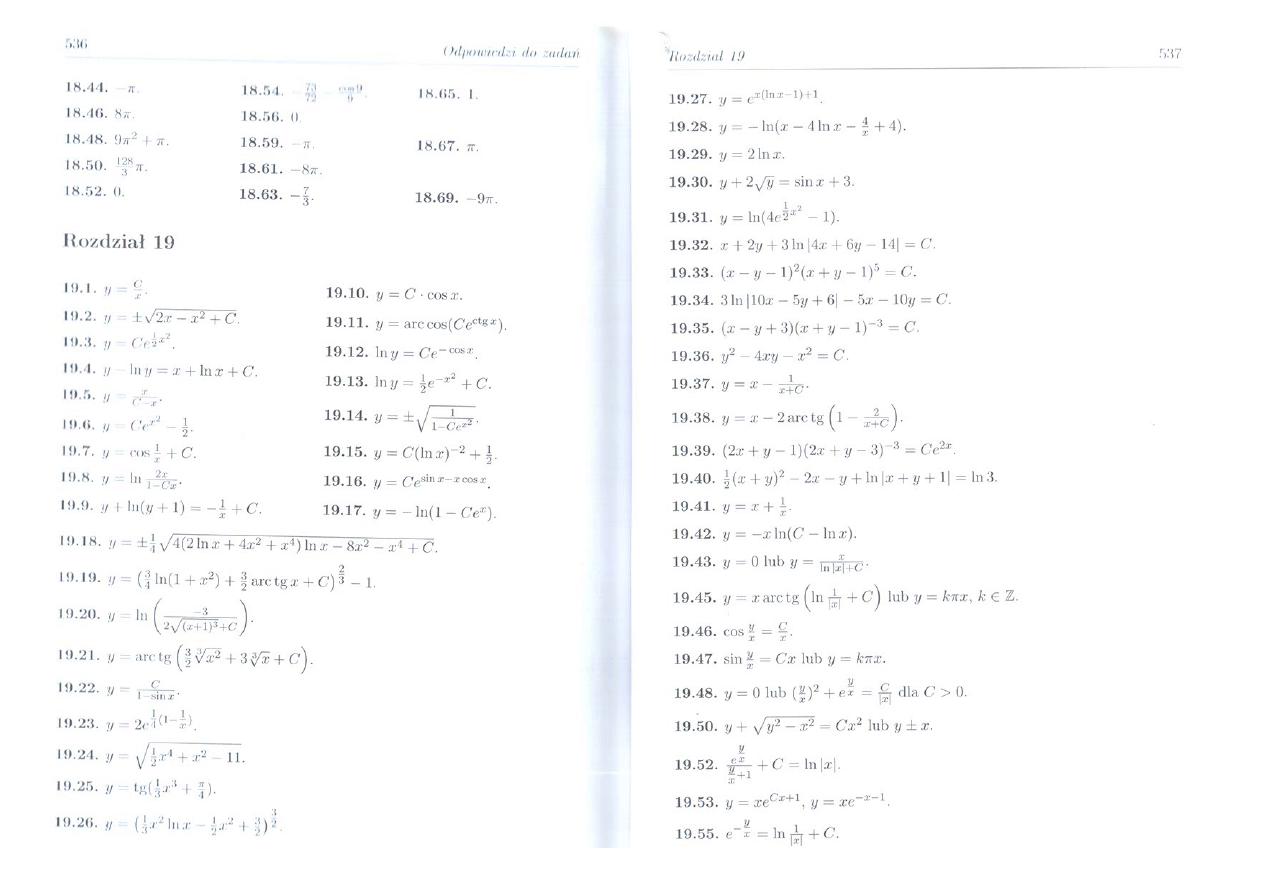 536
Odpowiedzi do zadań
18.44. −π.
18.46. 8π.
18.48. 9π² + π.
18.50. 128/3 π.
18.52. 0.
18.54. −73/72 − cos 9/9.
18.56. 0.
18.59. −π.
18.61. −8π.
18.63. −7/3.
18.65. 1.
18.67. π.
18.69. −9π.
Rozdział 19
19.1. y = C/x.
19.2. y = ±√(2x − x² + C).
19.3. y = Ce^(½x²).
19.4. y − ln y = x + ln x + C.
19.5. y = x/(C−x).
19.6. y = Ce^(x²) − 1/2.
19.7. y = cos 1/x + C.
19.8. y = ln 2x/(1−Cx).
19.9. y + ln(y + 1) = −1/x + C.
19.10. y = C · cos x.
19.11. y = arc cos(Ce^(ctg x)).
19.12. ln y = Ce^(−cos x).
19.13. ln y = ½e^(−x²) + C.
19.14. y = ±√(1/(1−Ce^(x²))).
19.15. y = C(ln x)^(−2) + 1/2.
19.16. y = Ce^(sin x−x cos x).
19.17. y = − ln(1 − Ce^x).
19.18. y = ±¼√(4(2 ln x + 4x² + x⁴) ln x − 8x² − x⁴ + C).
19.19. y = (¾ ln(1 + x²) + 3/2 arc tg x + C)^(2/3) − 1.
19.20. y = ln (−3/(2√((x+1)³)+C)).
19.21. y = arc tg (3/2 ∛(x²) + 3∛x + C).
19.22. y = C/(1−sin x).
19.23. y = 2e^(¼(1−1/x)).
19.24. y = √(½x⁴ + x² − 11).
19.25. y = tg(⅓x³ + π/4).
19.26. y = (⅓x² ln x − ½x² + 3/2)^(3/2).
Rozdział 19
537
19.27. y = e^(x(ln x−1)+1).
19.28. y = − ln(x − 4 ln x − 4/x + 4).
19.29. y = 2 ln x.
19.30. y + 2√y = sin x + 3.
19.31. y = ln(4e^(½x²) − 1).
19.32. x + 2y + 3 ln |4x + 6y − 14| = C.
19.33. (x − y − 1)²(x + y − 1)⁵ = C.
19.34. 3 ln |10x − 5y + 6| − 5x − 10y = C.
19.35. (x − y + 3)(x + y − 1)^(−3) = C.
19.36. y² − 4xy − x² = C.
19.37. y = x − 1/(x+C).
19.38. y = x − 2 arc tg (1 − 2/(x+C)).
19.39. (2x + y − 1)(2x + y − 3)^(−3) = Ce^(2x).
19.40. ½(x + y)² − 2x − y + ln |x + y + 1| = ln 3.
19.41. y = x + 1/x.
19.42. y = −x ln(C − ln x).
19.43. y = 0 lub y = x/(ln |x|+C).
19.45. y = x arc tg (ln 1/|x| + C) lub y = kπx, k ∈ ℤ.
19.46. cos y/x = C/x.
19.47. sin y/x = Cx lub y = kπx.
19.48. y = 0 lub (y/x)² + e^(y/x) = C/|x| dla C > 0.
19.50. y + √(y² − x²) = Cx² lub y ± x.
19.52. e^(y/x)/(y/x+1) + C = ln |x|.
19.53. y = xe^(Cx+1), y = xe^(−x−1).
19.55. e^(−y/x) = ln 1/|x| + C.